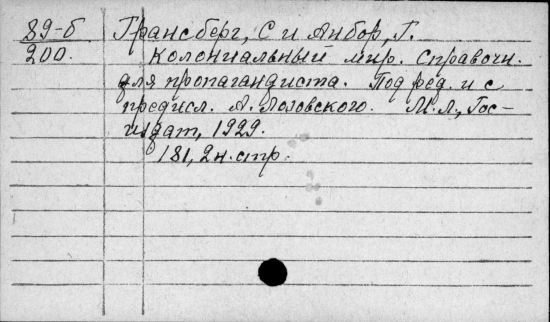 89-б Грансберг, С и Анбор, Г.
200. Колониальный мир. Справочн.
для пропагандиста. Под ред. и с
предисл. А. Лозовского. М.Л., Гос-
издат, 1929.
181, 2н. стр.